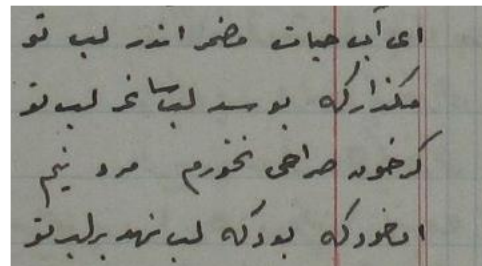 ای آب حیات مضمر اندر لب تو
مگذار که بوسد لب ساغر لب تو
گر خون صراحی نخورم مرد نیم
او خود که بود که لب نهد بر لب تو